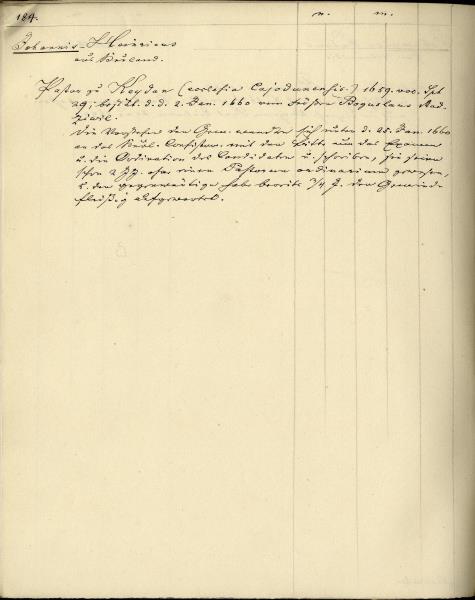 184. n. m.
Johannis, Heinricus
aus Kurland.
Pastor zu Keydan (ecclesia Cajodunensis.) 1659. voc. Spt
29; bestät. d. d. 2. Jan. 1660 vom Fürsten Boguslaus Rad-
ziwil.
Die Vorsteher der Gem. wandten sich unter d. 25. Jan. 1660
an das Kurl. Consistor. mit der Bitte um das Examen
u. die Ordination des Candidaten u. schreiben, sie seien
schon 2 JJ. ohne einen Pastorem ordinarium gewesen,
u. der gegenwärtige habe bereits 3/4 J. der Gemeinde
fleißig aufgewartet.